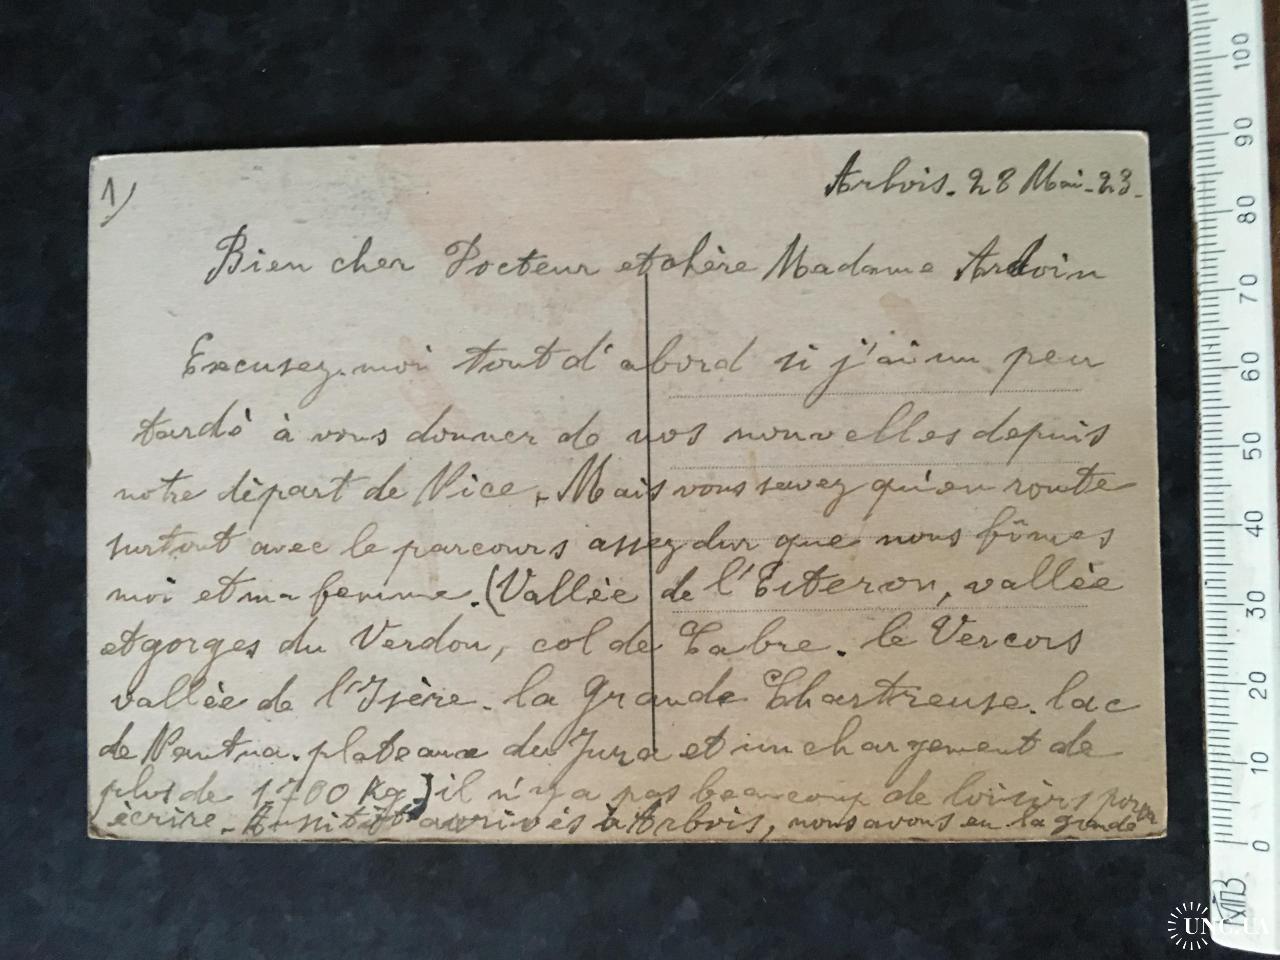 1)
Arbois. 28 Mai. 23.
Bien cher Docteur et chère Madame Ardoin
Excusez-moi tout d'abord si j'ai un peu
tardé à vous donner de nos nouvelles depuis
notre départ de Nice. Mais vous savez qu'en route
surtout avec le parcours assez dur que nous fîmes
moi et ma femme. (Vallée de l'Esteron, vallée
et gorges du Verdon, col de Cabre. le Vercors
vallée de l'Isère. la Grande Chartreuse. lac
de Nantua. plateaux du Jura et un chargement de
plus de 1700 Kg) il n'y a pas beaucoup de loisirs pour
écrire. Aussitôt arrivés à Arbois, nous avons eu la grande
100
90
80
70
60
50
40
30
20
10
0
МПЗ
UNC.UA